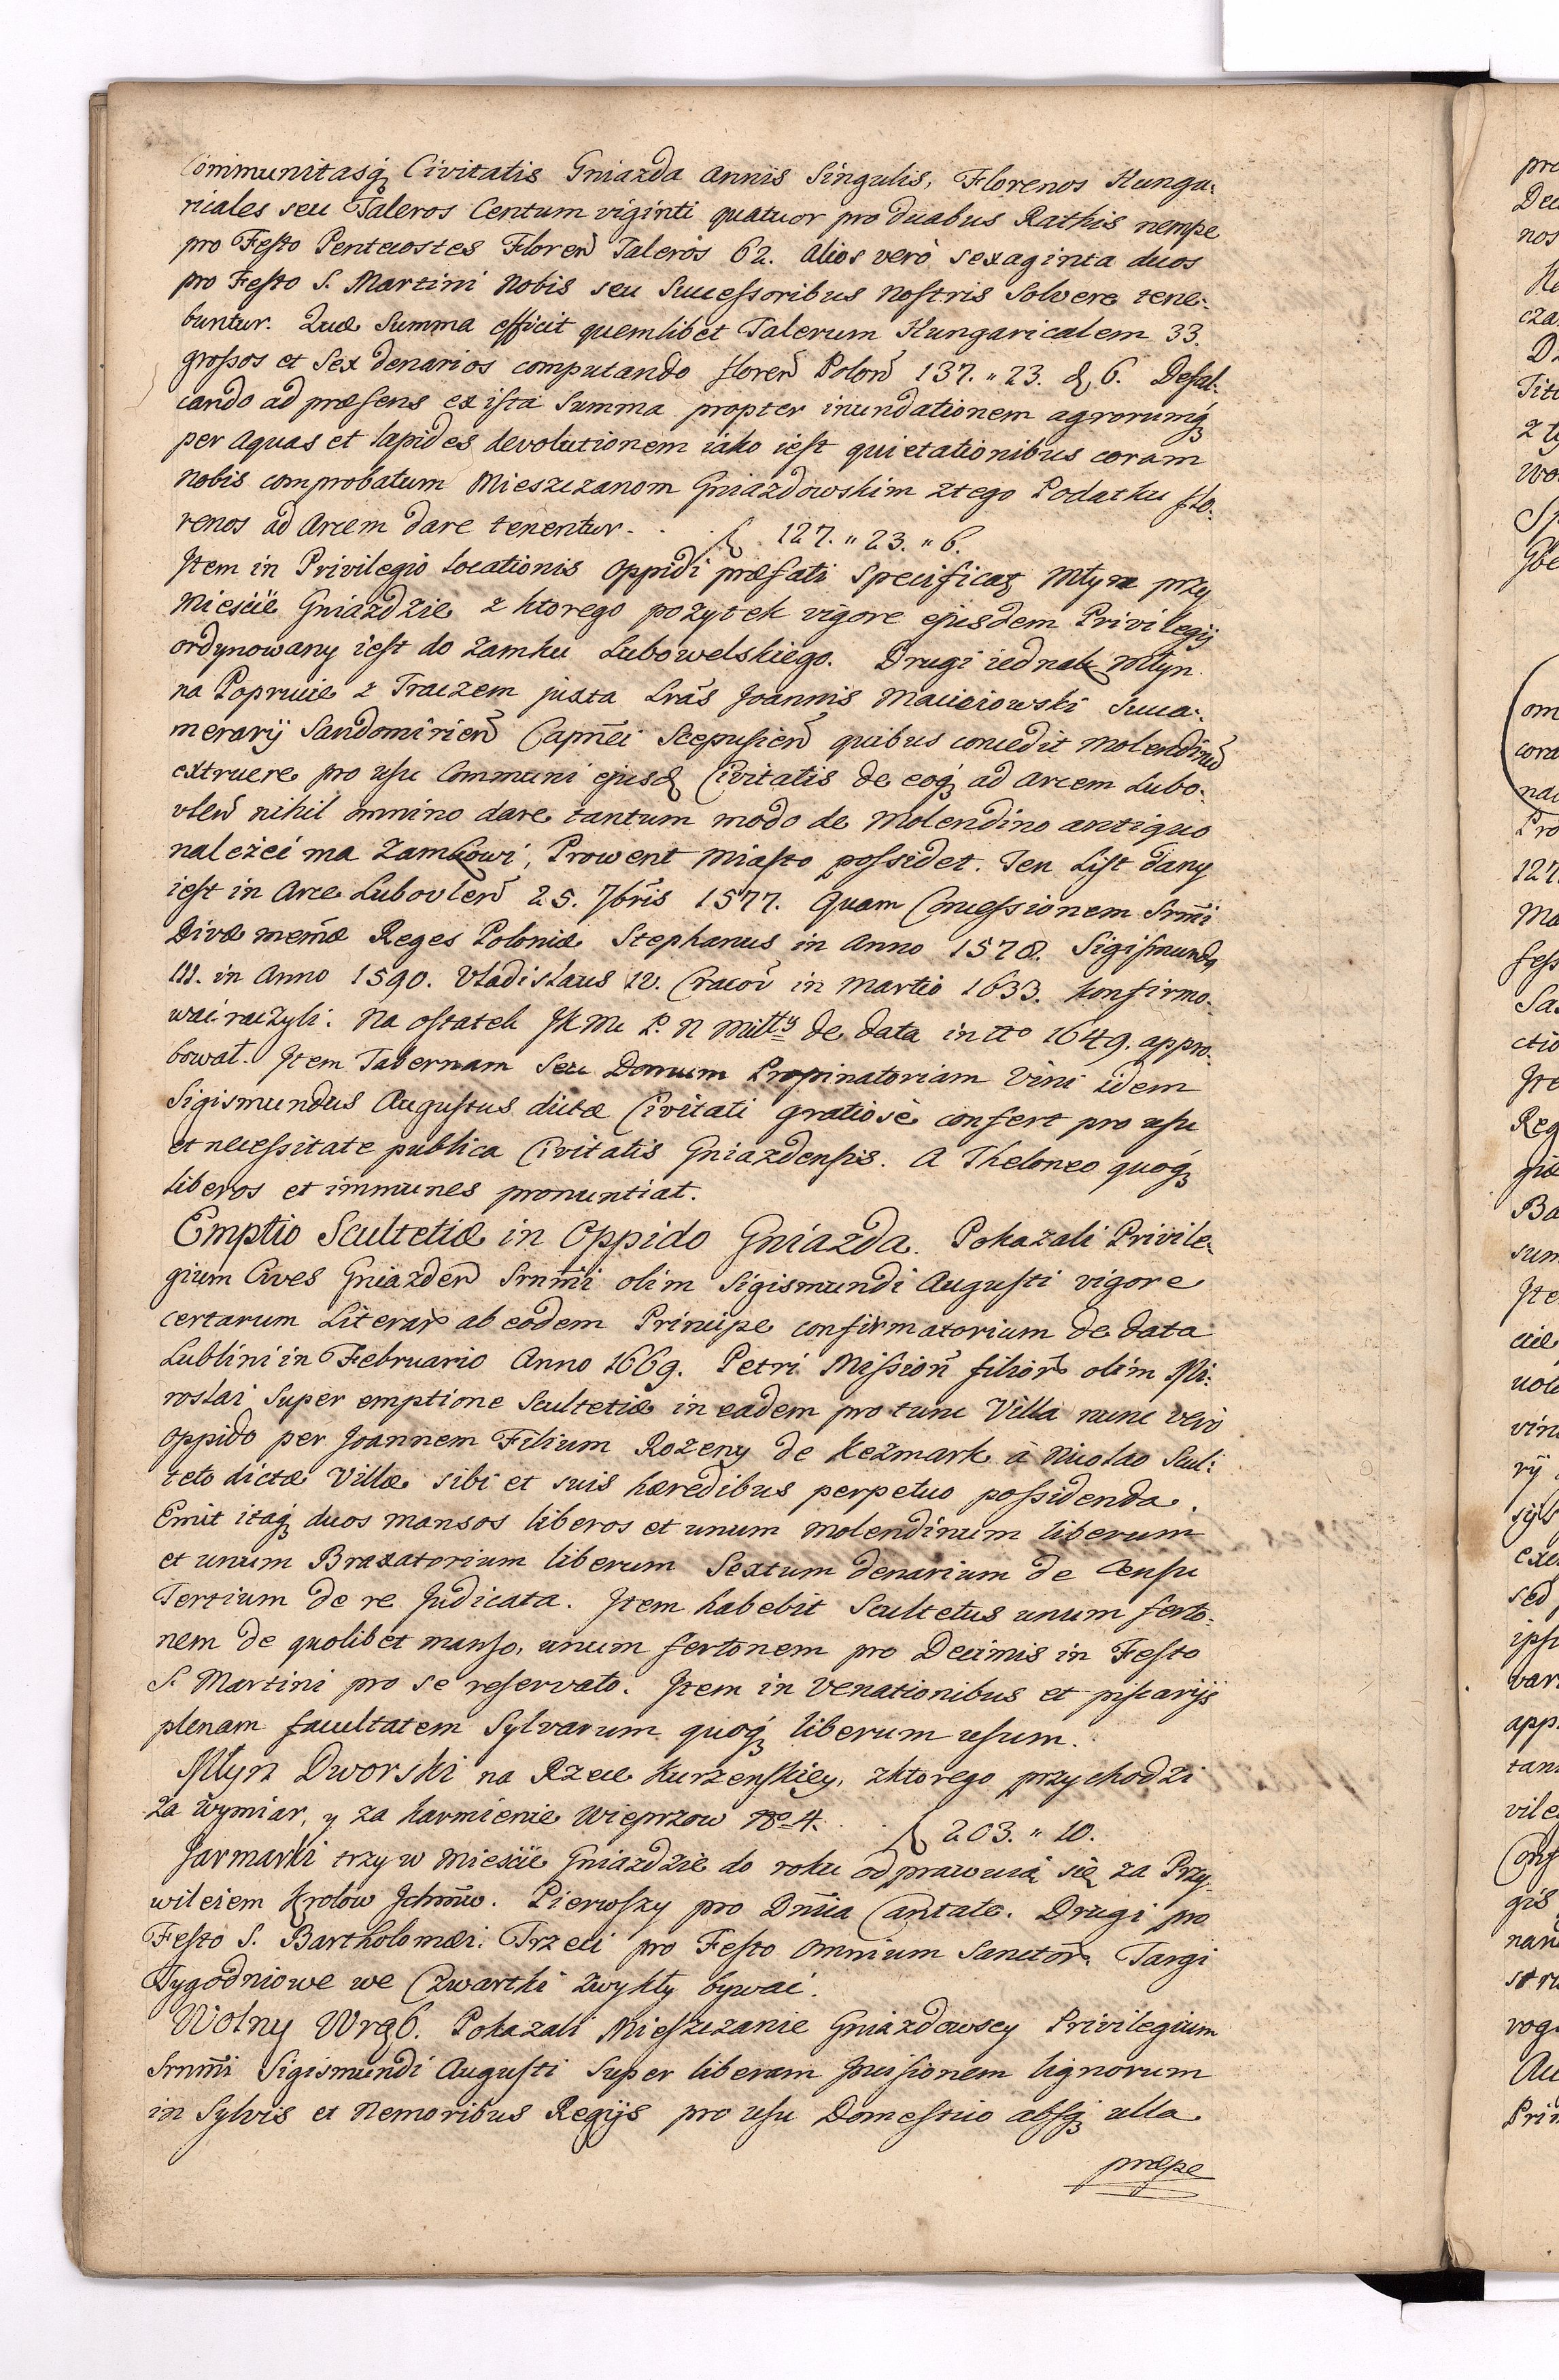 Communitasq Civitatis Gniazda Annis Singulis, Florenos Hunga:
ricales seu Taleros Centum viginti quatuor pro duabus Rathis nempe
pro Festo Pentecostes Floren̄ Taleros 62. Alios verò sexaginta duos
pro Festo S. Martini Nobis seu Successoribus Nostris Solvere tene:
buntur. Quæ Summa efficit quemlibet Talerum Hungaricalem 33.
grossos et Sex denarios computando floren̄ Polon̄ 137. " 23. & 6. Defal:
cando ad præsens ex ista Summa propter inundationem agrorumq
per Aquas et Lapides devolutionem iako iest quietationibus coram
Nobis comprobatum Mieszczanom Gniazdowskim ztego Podatku flo:
renos ad Arcem dare tenentur. . . . f. 127. " 23. " 6.
Item in Privilegio Locationis Oppidi præfati Specificat Młyn przy
Mieście Gniazdzie z ktorego pożytek vigore ejusdem Privilegij
ordynowany iest do Zamku Lubowelskiego. Drugi iednak Młyn
na Popradzie z Traczem juxta Lrãs Joannis Macieiowski Succa:
merarij Sandomirien̄ Capñei Scepusien̄ quibus concedit Molendinū
extruere pro usu Communi ejusd Civitatis de eoq ad Arcem Lubo:
vlen̄ nihil omnino dare tantum modo de Molendino antiquo
należeć ma Zamkowi, Prowent Miasto possidet. Ten List dany
iest in Arce Lubovlen̄ 25. 7bris 1577. Quam Concessionem Srm̄i
Divæ mem̄æ Reges Poloniæ Stephanus in Anno 1578. Sigismundq
III. in Anno 1590. Vladislaus IV. Cracov̄ in Martio 1633. konfirmo:
wać raczyli. Na ostatek JK Mc P. N Miłłty de data in tto 1649. appro:
bował. Item Tabernam Seu Domum Propinatoriam Vini idem
Sigismundus Augustus dictæ Civitati gratiosè confert pro usu
et necessitate publica Civitatis Gniazdensis. A Theloneo quoq
liberos et immunes pronuntiat.
Emptio Scultetiæ in Oppido Gniazda. Pokazali Privile:
gium Cives Gniazden̄ Srm̄i olim Sigismundi Augusti vigore
certarum Literar̄ ab eodem Principe confirmatorium de data
Lublini in Februario Anno 1669. Petri Mission̄ filior̄ olim Mi:
roslai Super emptione Scultetiæ in eadem pro tunc Villa nunc verò
oppido per Joannem Filium Rozeny de Kezmark à Nicolao Scul:
teto dictæ Villæ sibi et suis hæredibus perpetuo possidenda.
Emit itaq duos mansos liberos et unum molendinum liberum
et unum Braxatorium liberum Sextum denarium de Censu
Tertium de re Judicata. Item habebit Scultetus unum ferto:
nem de quolibet manso, unum fertonem pro Decimis in Festo
S. Martini pro se reservato. Item in Venationibus et piscarijs
plenam facultatem Sylvarum quoq liberum usum.
Młyn Dworski na Rzece Kurzenskiey, zktorego przychodzi
Za wymiar, y za karmienie Wieprzow No 4. . . f. 203. " 10.
Jarmarki trzy w Mieście Gniazdzie do roku odprawuią się za Przy:
wileiem Krolow Jchm̄w. Pierwszy pro Dm̄ica Cantate. Drugi pro
Festo S. Bartholomæi. Trzeci pro Festo Omnium Sanctor̄. Targi
Tygodniowe we Czwartki Zwykły bywać.
Wolny Wrąb. Pokazali Mieszczanie Gniazdowscy Privilegium
Srm̄i Sigismundi Augusti Super liberam Jncisionem lignorum
in Sylvis et Nemoribus Regijs pro usu Domestico absq ulla
præpe